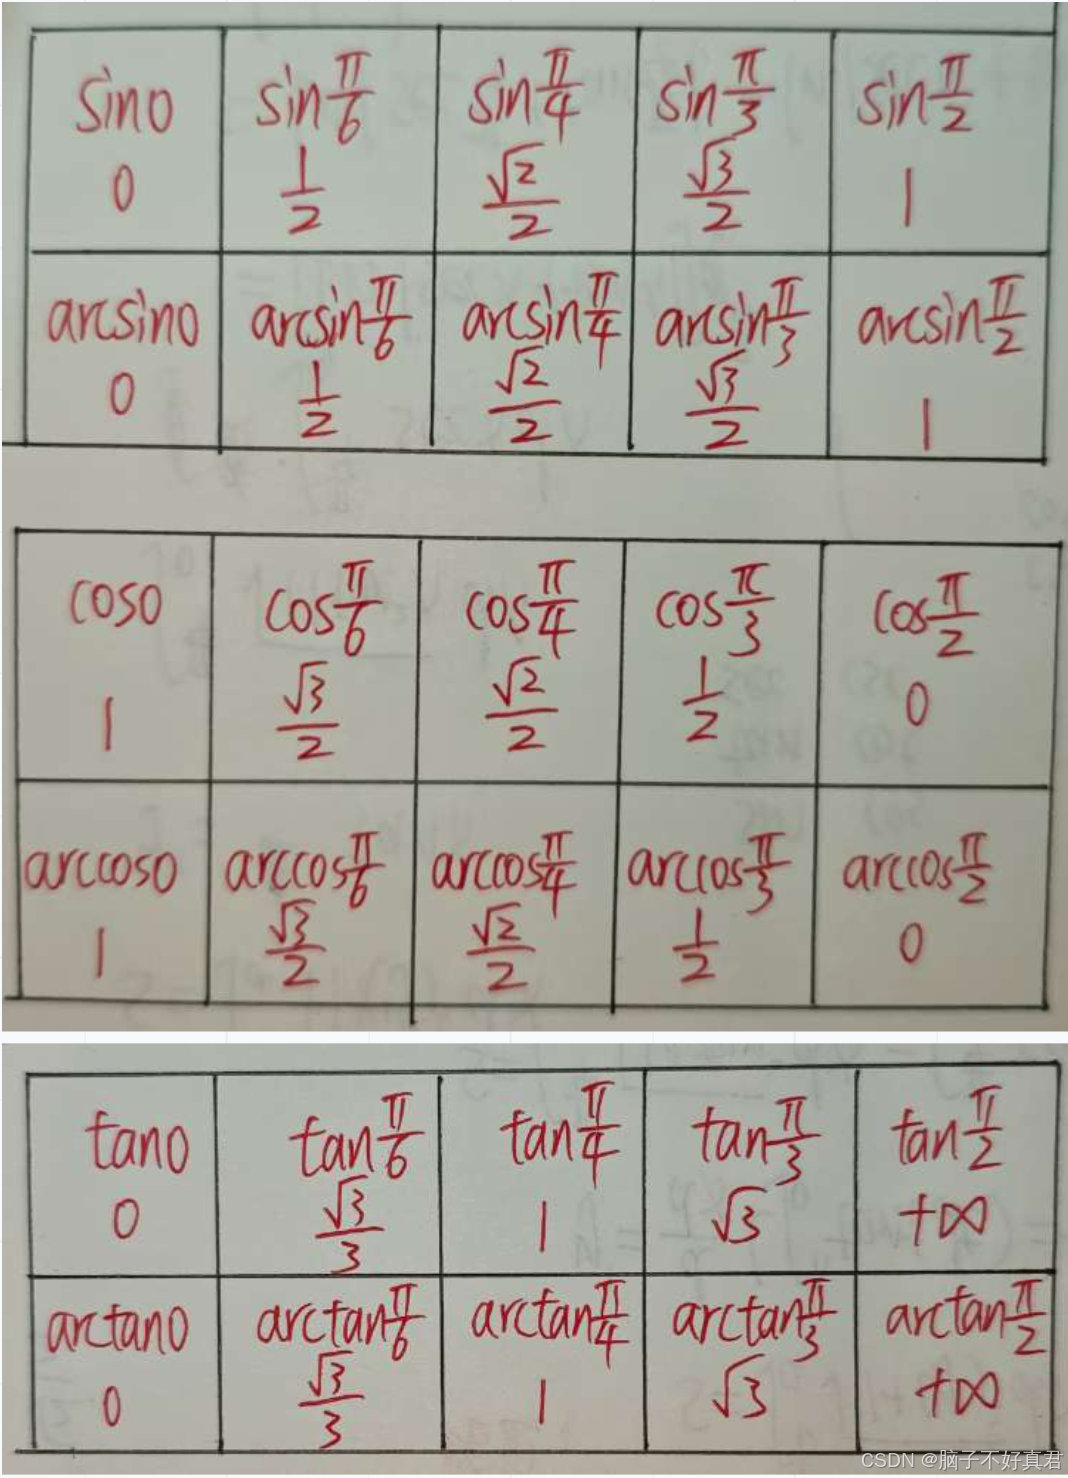 sin0 sin π/6 sin π/4 sin π/3 sin π/2
0 1/2 √2/2 √3/2 1
arcsin0 arcsin π/6 arcsin π/4 arcsin π/3 arcsin π/2
0 1/2 √2/2 √3/2 1
cos0 cos π/6 cos π/4 cos π/3 cos π/2
1 √3/2 √2/2 1/2 0
arccos0 arccos π/6 arccos π/4 arccos π/3 arccos π/2
1 √3/2 √2/2 1/2 0
tan0 tan π/6 tan π/4 tan π/3 tan π/2
0 √3/3 1 √3 +∞
arctan0 arctan π/6 arctan π/4 arctan π/3 arctan π/2
0 √3/3 1 √3 +∞
CSDN @脑子不好真君